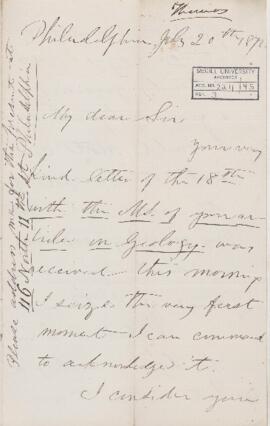 Thomas
Philadelphia, July 20th 187
McGILL UNIVERSITY
ARCHIVES
ACC. NO.
REF.
My dear Sir
Your very
kind letter of the 18th
with the MS. of your ar-
ticles in Geology was
received this morning
I seize the very first
moment I can command
to acknowledge it.
I consider your
Please address me for the present at
116 North 11th St. Philadelphia